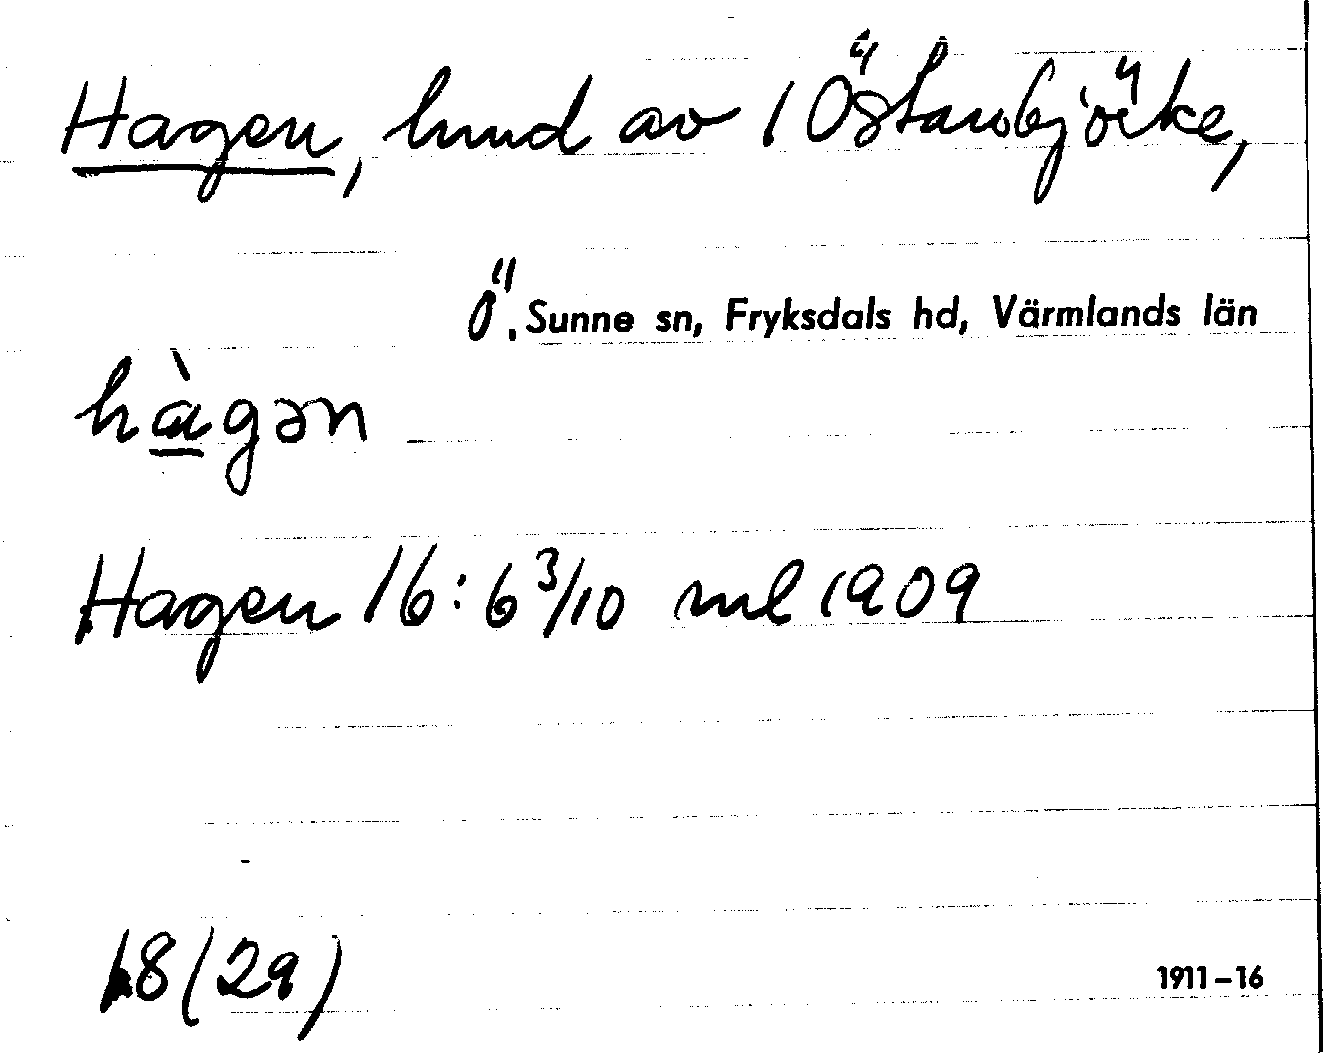 Hagen, hmd av 1 Östanbjörke,
Ö. Sunne sn, Fryksdals hd, Värmlands län
hàgən
Hagen 16: 6 3/10 ml 1909
18 (29)
1911–16